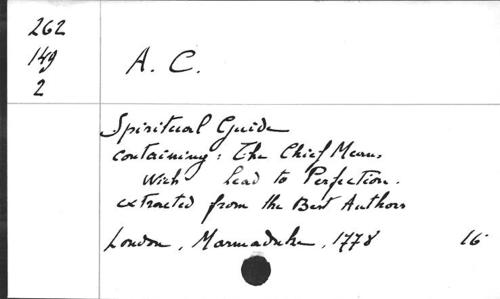 262
149
2
A. C.
Spiritual Guide
containing: The Chief Means
Wich lead to Perfection.
extracted from the Best Authors
London, Marmaduke, 1778 16°